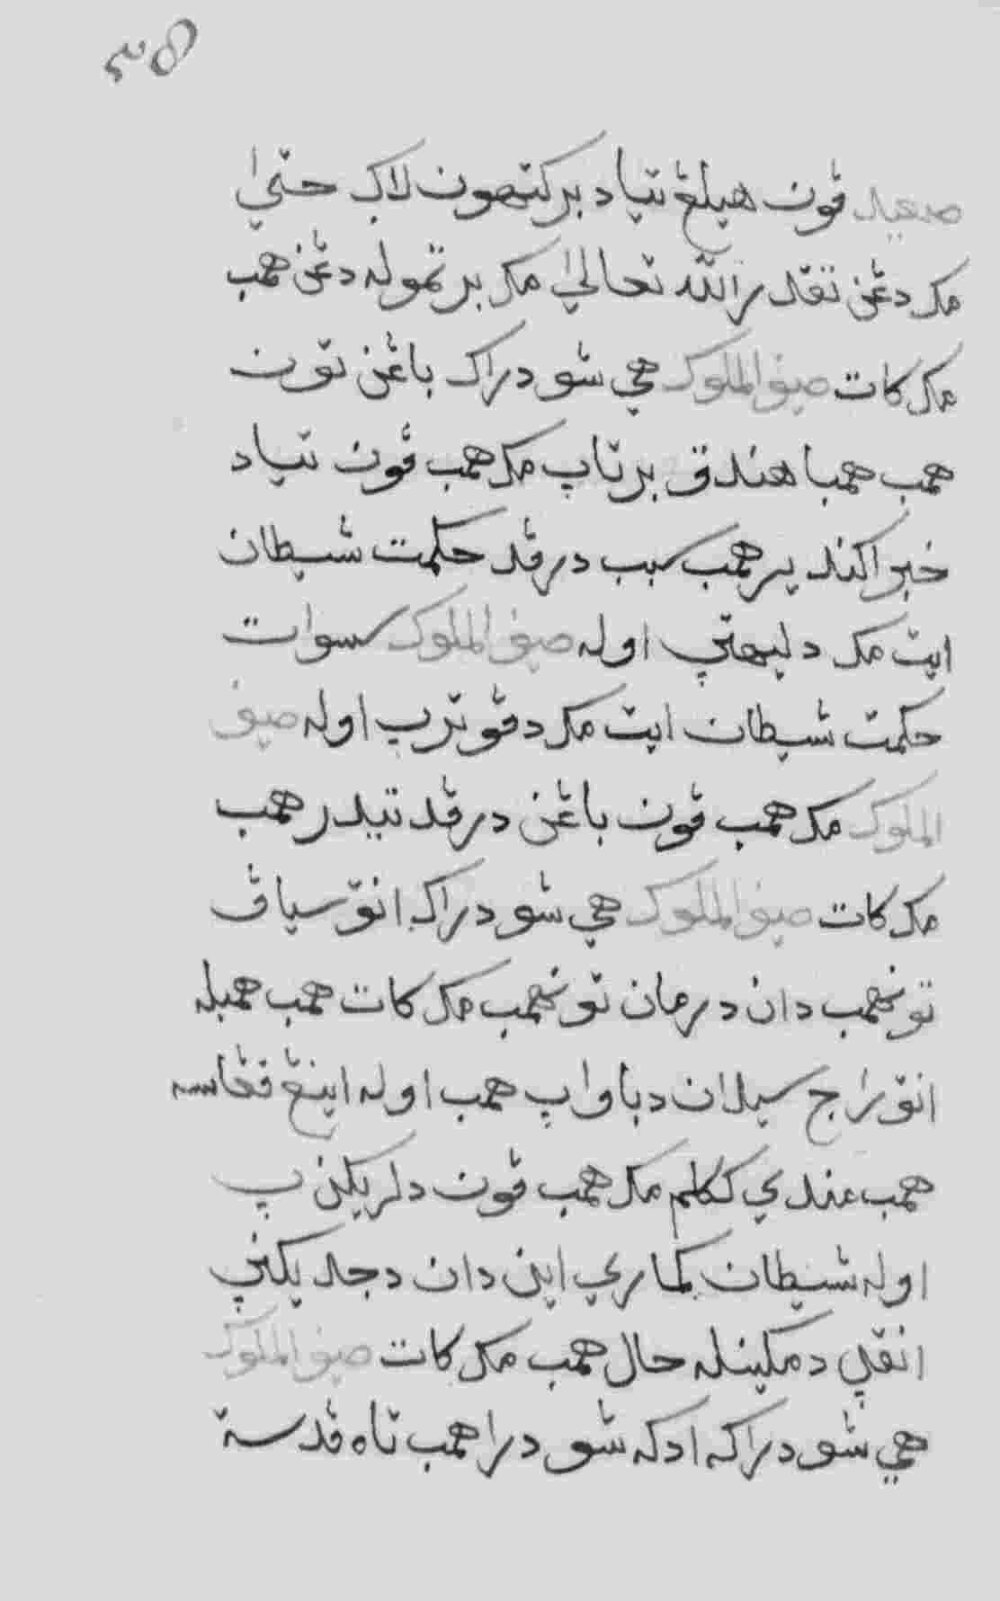 ٣٥
صعيد ڤون هيلڠ تياد بركتهون لاݢ حتىٰ
مک دڠن تقدير الله تعالىٰ مک برتموله دڠن همب
مک كات صيف الملوك هي سّودراک باڠن تون
همب همبا هندق برتاپ مک همب ڤون تياد
خبراکند ير همب سبب درڤد حکمت شيطان
ايت مک دليهتپ اوله صيف الملوك سسوات
حکمت شيطان ايت مک دڤوترپ اوله صيف
الملوك مک همب ڤون باڠن درڤد تيدر همب
مک كات صيف الملوك هي سّودراک انق سياڤ
تونهمب دان درمان تونهمب مک كات همب همبله
انق راج سيلان دباواپ همب اوله اينڠ ڤڠاسه
همب عندي ککلم مک همب ڤون دلريکنپ
اوله شيطان کماري اين دان دجديکنپ
انقپ دمکينله حال همب مک كات صيف الملوك
هي سّودراکه ادکه سّودرا همب تاه ڤد سّة